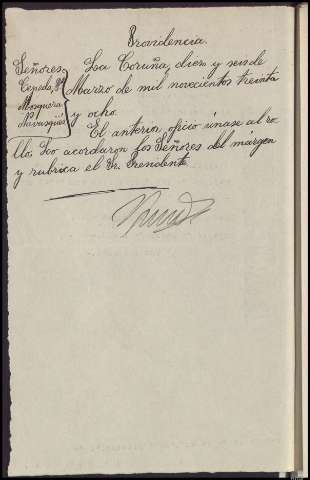 Providencia.
Señores
Cepeda, Pte
Mosquera
Navasqües
La Coruña, diez y seis de
Marzo de mil novecientos treinta
y ocho.
El anterior oficio únase al ro-
llo. Lo acordaron los Señores del márgen
y rubrica el Sr. Presidente